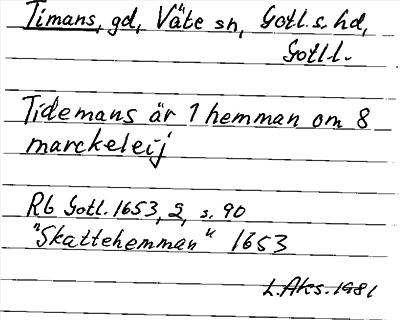 Timans, gd, Väte sn, Gotl. s. hd,
Gotl l.
Tidemans är 1 hemman om 8
marckeleij
Rb Gotl. 1653, 2, s. 90
"Skattehemman" 1653
L. Aks. 1981